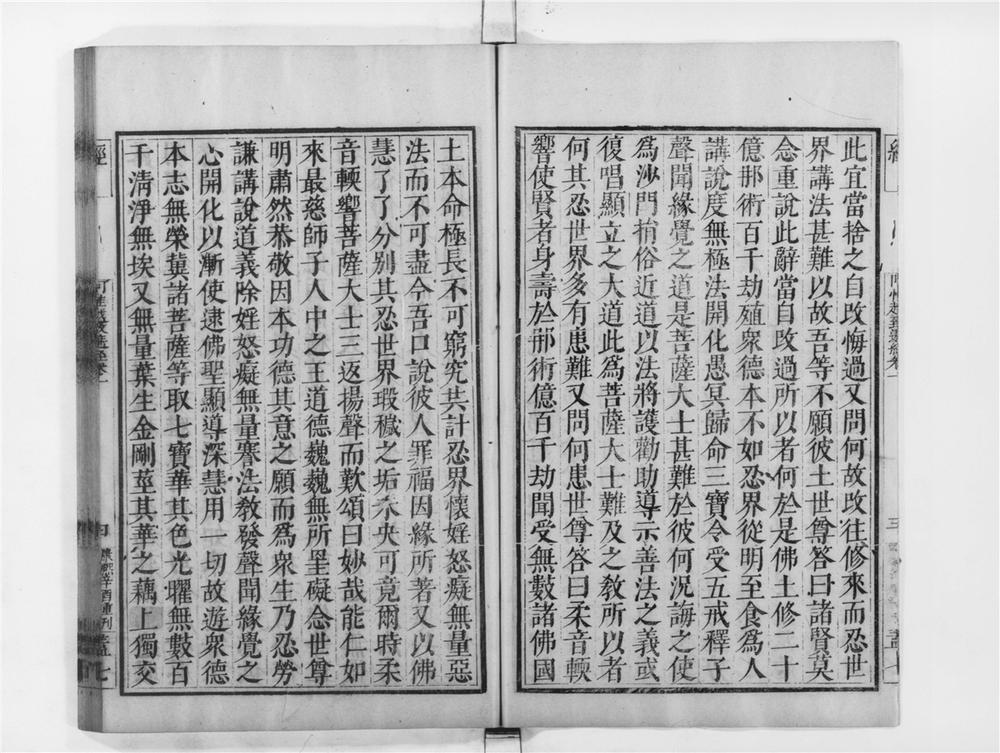 此宜當捨之自改悔過又問何故改往修來而忍世
界講法甚難以故吾等不願彼土世尊答曰諸賢莫
念重說此辭當自改過所以者何於是佛土修二十
億那術百千劫殖衆德本不如忍界從明至食爲人
講說度無極法開化愚冥歸命三寶令受五戒釋子
聲聞緣覺之道是菩薩大士甚難於彼何況誨之使
爲沙門捎俗近道以法將護勸助導示善法之義或
復唱顯立之大道此爲菩薩大士難及之敎所以者
何其忍世界多有患難又問何患世尊答曰柔音輭
響使賢者身壽於那術億百千劫聞受無數諸佛國
土本命極長不可窮究共計忍界懷婬怒癡無量惡
法而不可盡今吾口說彼人罪福因緣所著又以佛
慧了了分別其忍世界瑕穢之垢未央可竟爾時柔
音輭響菩薩大士三返揚聲而歎頌曰妙哉能仁如
來最慈師子人中之王道德巍巍無所罣礙念世尊
明肅然恭敬因本功德其意之願而爲衆生乃忍勞
謙講說道義除婬怒癡無量謇法敎發聲聞緣覺之
心開化以漸使逮佛聖顯導深慧用一切故遊衆德
本志無榮冀諸菩薩等取七寶華其色光曜無數百
千清淨無埃又無量葉生金剛莖其華之藕上獨交
經
七